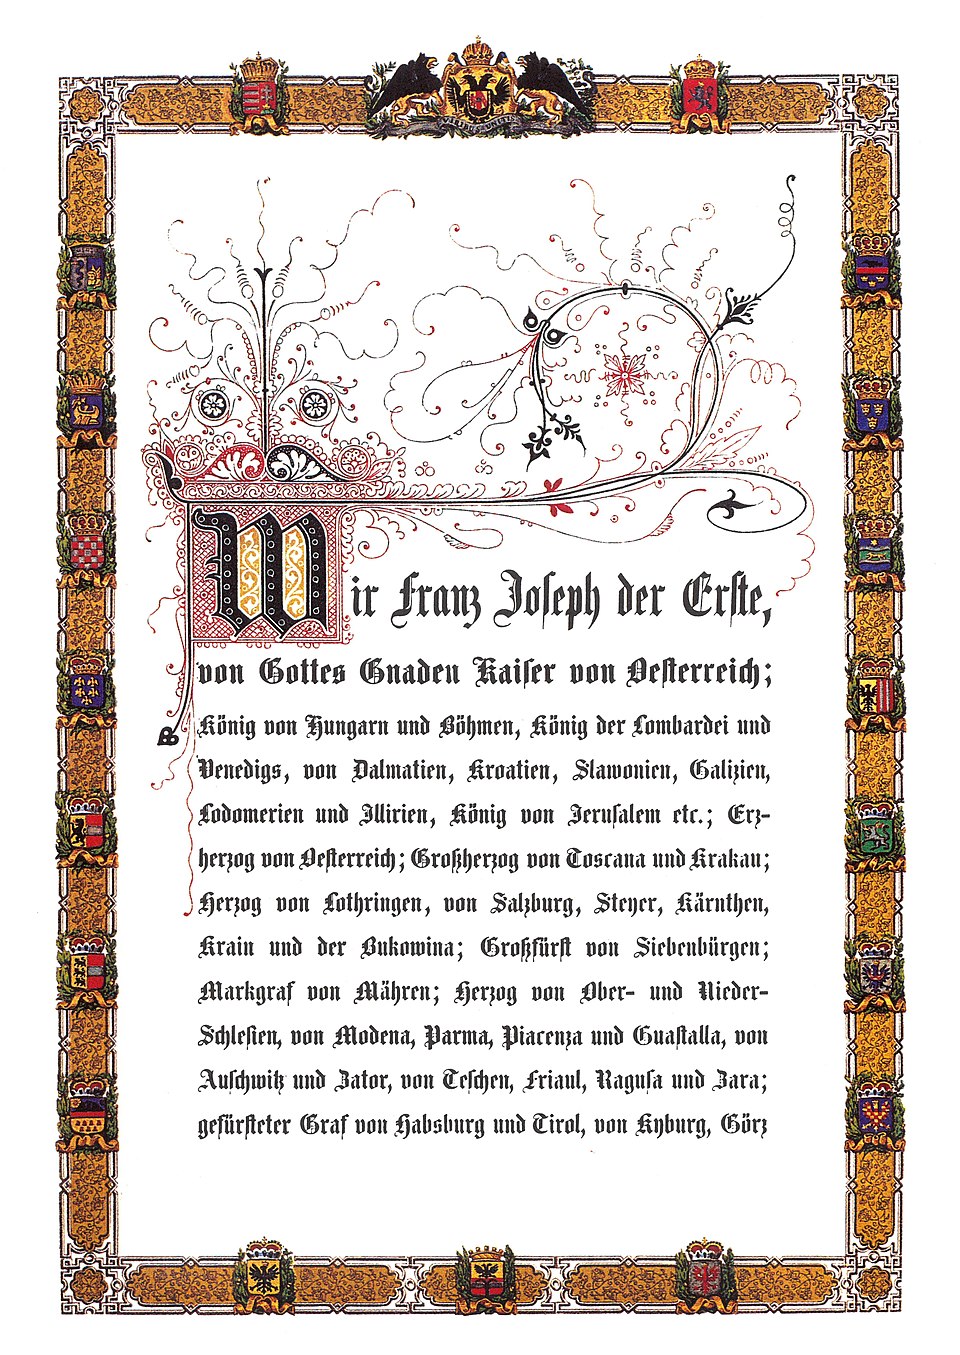 Wir Franz Joseph der Erste,
von Gottes Gnaden Kaiser von Oesterreich;
König von Hungarn und Böhmen, König der Lombardei und
Venedigs, von Dalmatien, Kroatien, Slawonien, Galizien,
Lodomerien und Illirien, König von Jerusalem etc.; Erz-
herzog von Oesterreich; Großherzog von Toscana und Krakau;
Herzog von Lothringen, von Salzburg, Steyer, Kärnthen,
Krain und der Bukowina; Großfürst von Siebenbürgen;
Markgraf von Mähren; Herzog von Ober- und Nieder-
Schlesien, von Modena, Parma, Piacenza und Guastalla, von
Auschwitz und Zator, von Teschen, Friaul, Ragusa und Zara;
gefürsteter Graf von Habsburg und Tirol, von Kyburg, Görz